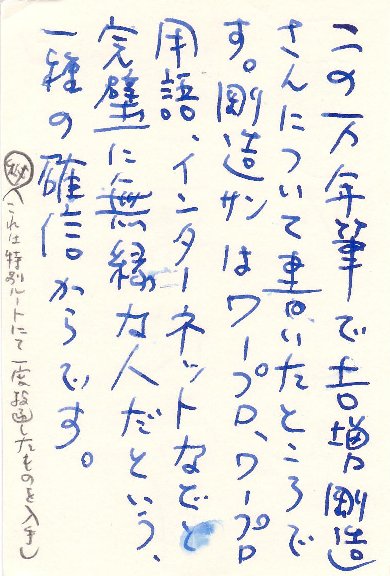 この万年筆で吉増剛造
さんについて書いたところで
す。剛造サンはワープロ、ワープロ
用語、インターネットなどと
完璧に無縁な人だという、
一種の確信からです。
㊙(これは特別ルートにて一度投函したものを入手)